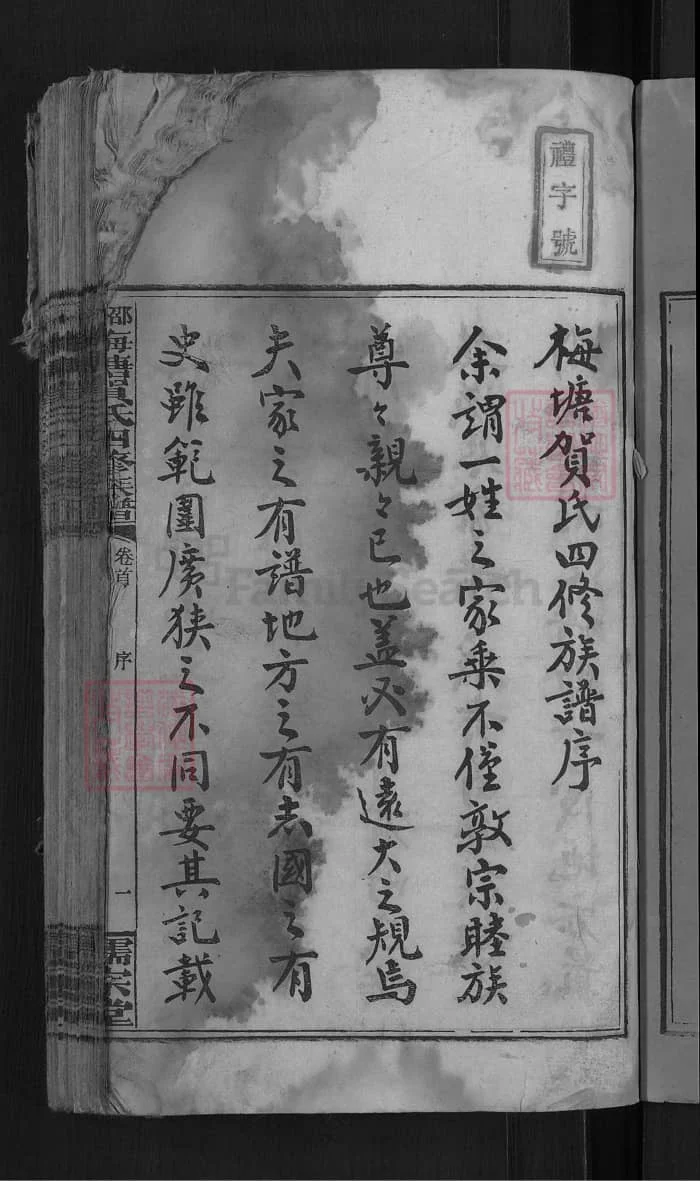 禮字號
梅塘賀氏四修族譜序
余謂一姓之家乘不僅敦宗睦族
尊々親々已也蓋必有遠大之規焉
夫家之有譜地方之有志國之有
史雖範圍廣狹之不同要其記載
邵梅塘賀氏四修族譜
卷首
序
一
儒宗堂
FamilySearch